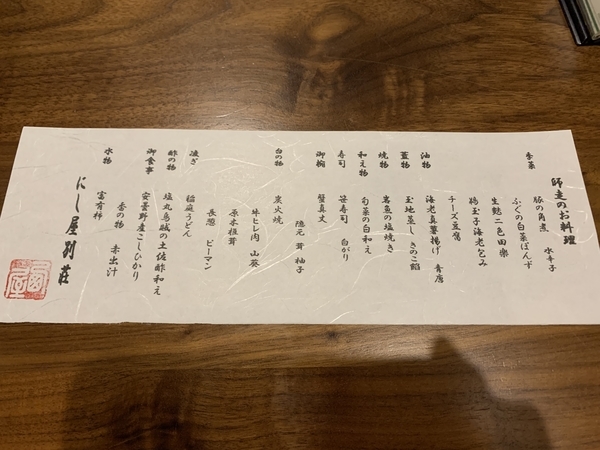 師走のお料理
季菜
豚の角煮 水辛子
ふぐの白菜ぽんず
生麩二色田楽
鶉玉子海老包み
チーズ豆腐
油物
海老真薯揚げ 青唐
蓋物
玉地蒸し きのこ餡
焼物
岩魚の塩焼き
和え物
旬菜の白和え
寿司
笹寿司 白がり
御椀
蟹真丈
隠元 茸 柚子
台の物
炭火焼
牛ヒレ肉 山葵
原木椎茸
長葱 ピーマン
凌ぎ
稲庭うどん
酢の物
塩丸烏賊の土佐酢和え
御食事
安曇野産こしひかり
香の物 赤出汁
水物
富有柿
にし屋別荘